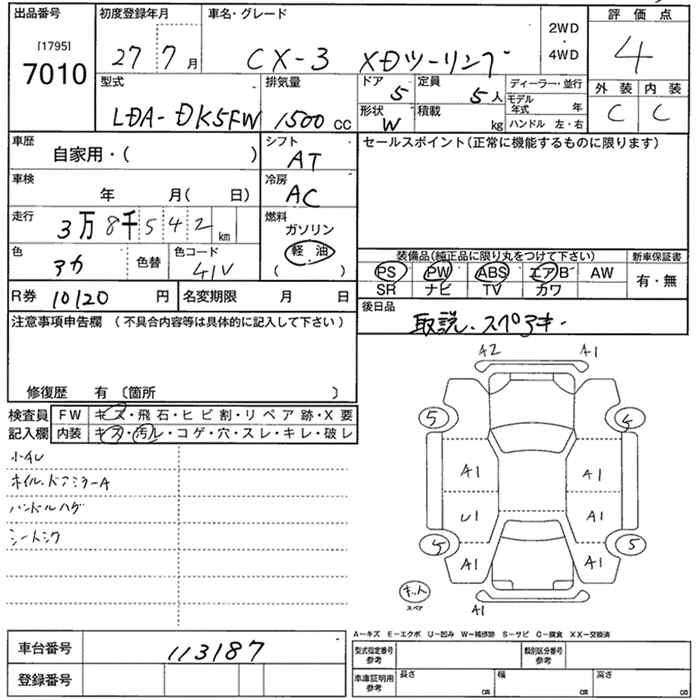 出品番号 初度登録年月 車名・グレード 評価点
[1795]
7010
27 7月 CX-3 XDツーリング 2WD・4WD 4
型式 排気量 ドア 5 定員 5人 ディーラー・並行 外装 内装
LDA-DK5FW 1500cc 形状 W 積載 kg モデル年式 年 C C
ハンドル 左・右
車歴 自家用・( ) シフト AT セールスポイント(正常に機能するものに限ります)
車検 年 月( 日) 冷房 AC
走行 3万8千542km 燃料 ガソリン
軽油
( )
色 色替 色コード 41V
装備品(純正品に限り丸をつけて下さい) 新車保証書
PS PW ABS エアB AW 有・無
SR ナビ TV カワ
R券 10120円 名変期限 月 日 後日品
取説、スペアキー
注意事項申告欄 (不具合内容等は具体的に記入して下さい)
修復歴 有 〔箇所 〕
検査員記入欄 FW キズ・飛石・ヒビ割・リペア跡・X要
内装 キズ・汚レ・コゲ・穴・スレ・キレ・破レ
ホイル、ドアミラーA
ハンドルハゲ
A2 A1
5
A1 A1
U1 A1
5 5
A1 A1
キット
スペア
A1
A-キズ E-エクボ U-凹み W-補修跡 S-サビ C-腐食 XX-交換済
車台番号 113187 型式指定番号 参考 類別区分番号 参考
登録番号 車庫証明用 参考 長さ cm 幅 cm 高さ cm